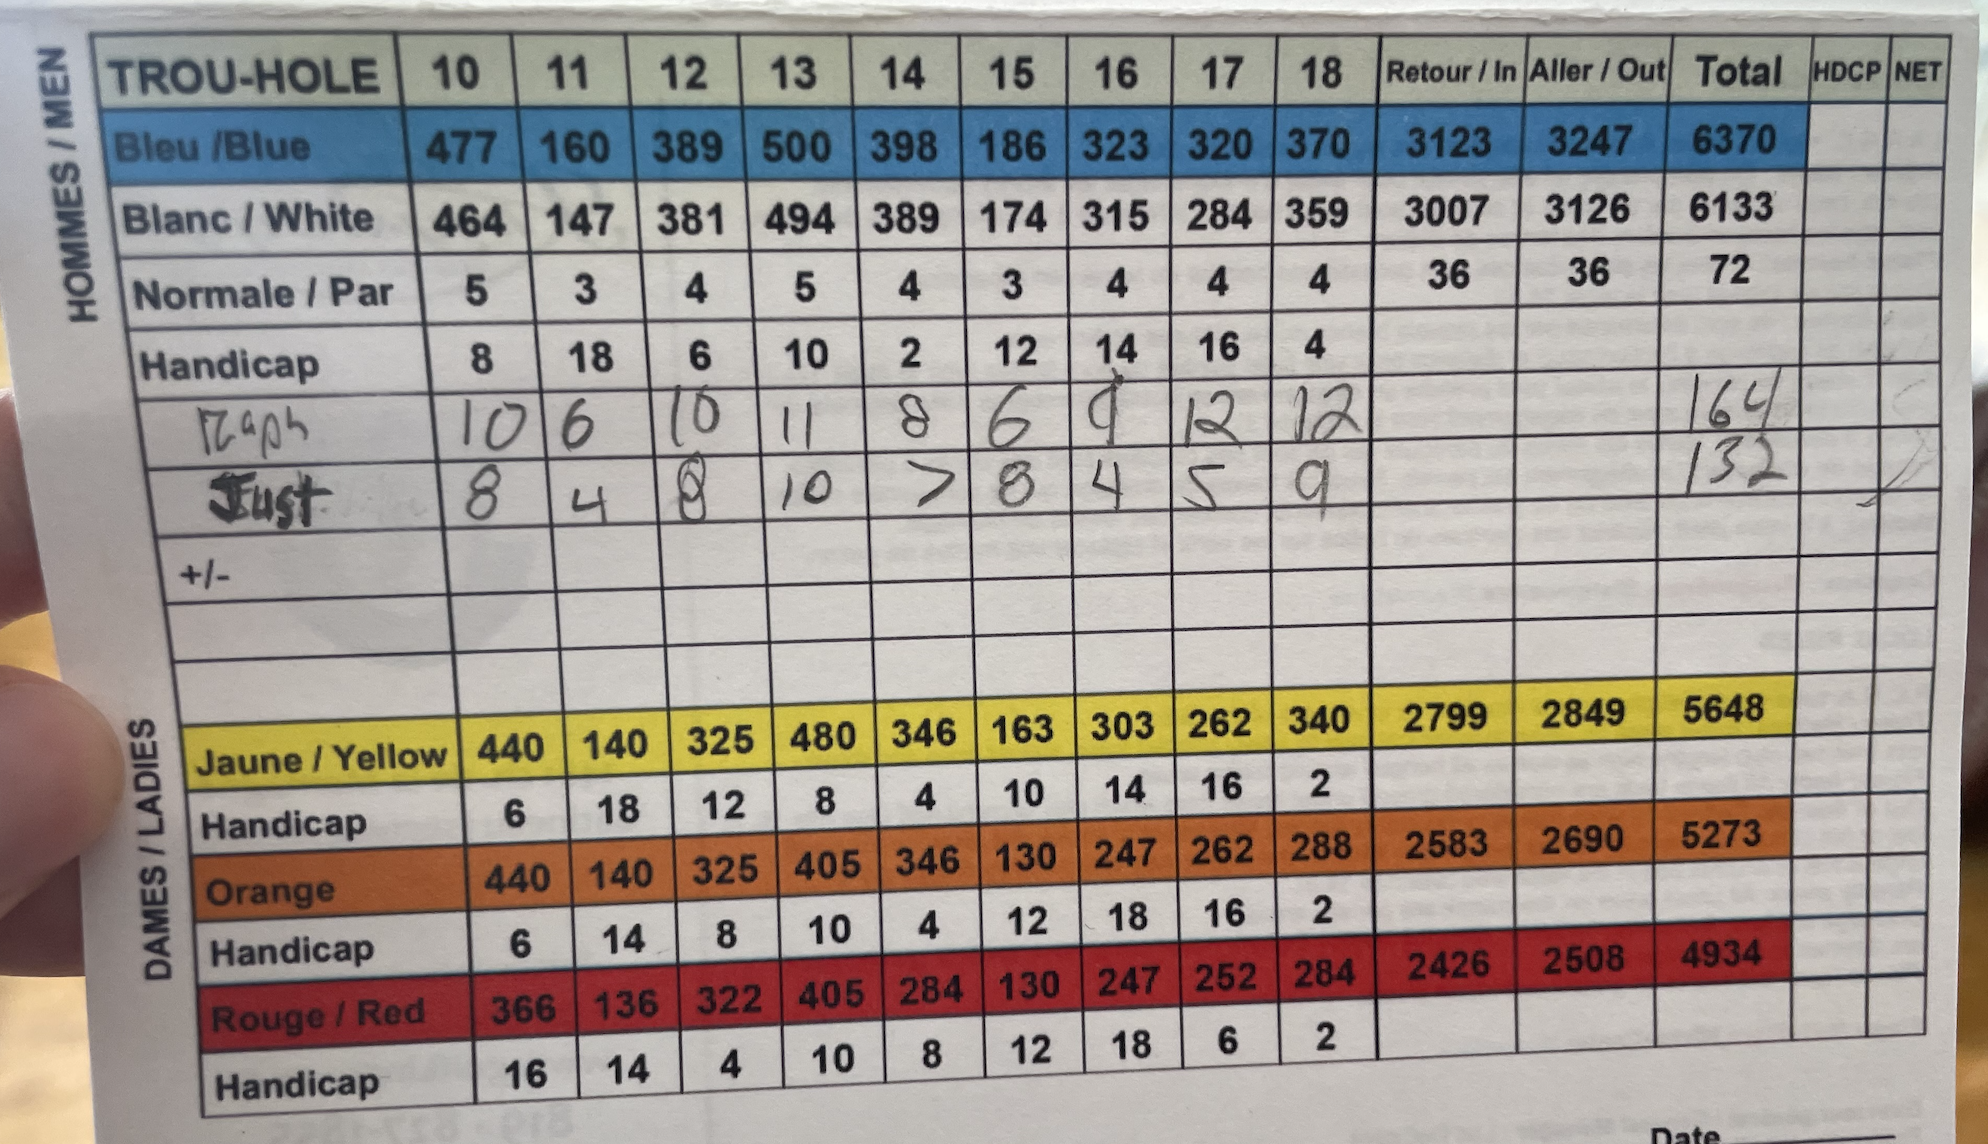 HOMMES / MEN
TROU-HOLE 10 11 12 13 14 15 16 17 18 Retour / In Aller / Out Total HDCP NET
Bleu /Blue 477 160 389 500 398 186 323 320 370 3123 3247 6370
Blanc / White 464 147 381 494 389 174 315 284 359 3007 3126 6133
Normale / Par 5 3 4 5 4 3 4 4 4 36 36 72
Handicap 8 18 6 10 2 12 14 16 4
Raph 10 6 10 11 8 6 9 12 12 164
Just 8 4 8 10 7 8 4 5 9 132
+/-
DAMES / LADIES
Jaune / Yellow 440 140 325 480 346 163 303 262 340 2799 2849 5648
Handicap 6 18 12 8 4 10 14 16 2
Orange 440 140 325 405 346 130 247 262 288 2583 2690 5273
Handicap 6 14 8 10 4 12 18 16 2
Rouge / Red 366 136 322 405 284 130 247 252 284 2426 2508 4934
Handicap 16 14 4 10 8 12 18 6 2
Date